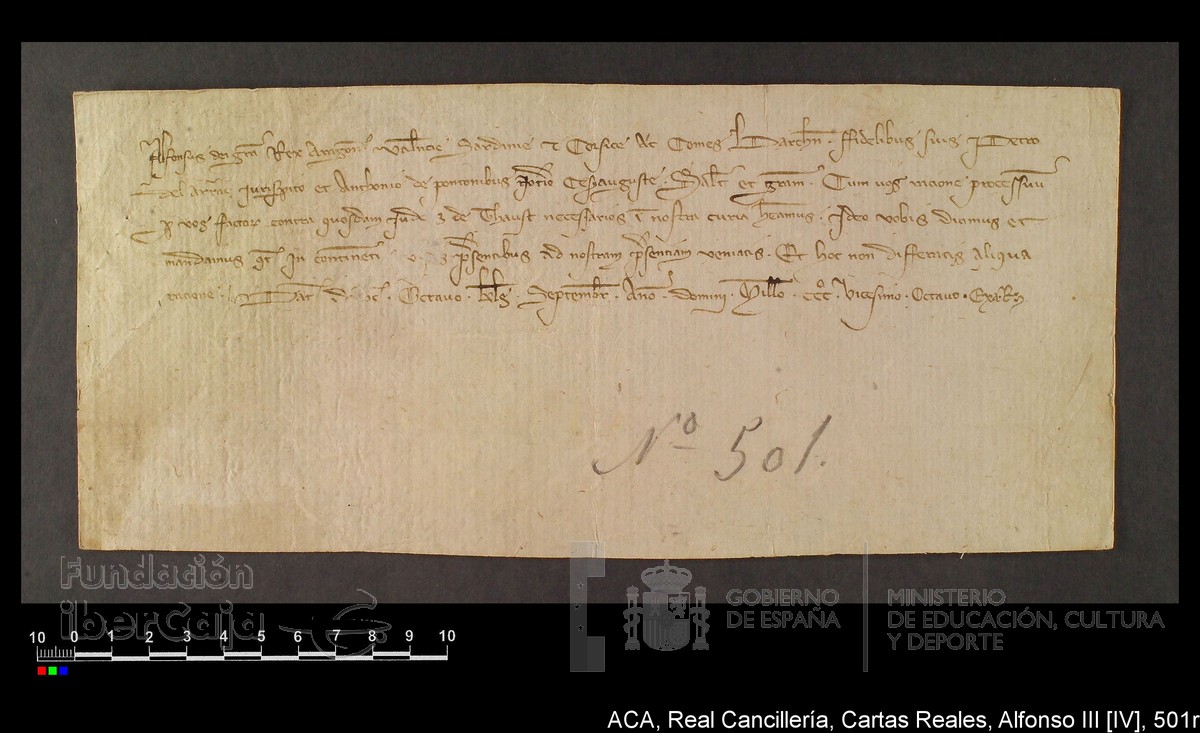 Alfonsus dei grā Rex Aragon̄ Valn̄cie Sardinie et Corsice Ac Comes Barchn̄ . ffidelibus suis Petro
iurisꝑito et Anthonio de pontonibus notr̄io Ces̄auguste Salt̄ et grām . Cum vos racione processuū
ꝑ vos factor̄ contra quosdam Iude de Thaust necessarios ī nostra curia hēamus . Ideo vobis dicimus et
mandamus qt̄ In continēti p̄sentibus ad nostram p̄senciam veniatis . Et hoc non differatis aliqua
racione . Dat̄ Octavo . kl̄s Septembr̄ . Anō domini Mill̄o . CCCº . Vicesimo . Octavo .
Nº 501.
Fundación
iberCaja
10 0 1 2 3 4 5 6 7 8 9 10
GOBIERNO
DE ESPAÑA
MINISTERIO
DE EDUCACIÓN, CULTURA
Y DEPORTE
ACA, Real Cancillería, Cartas Reales, Alfonso III [IV], 501r